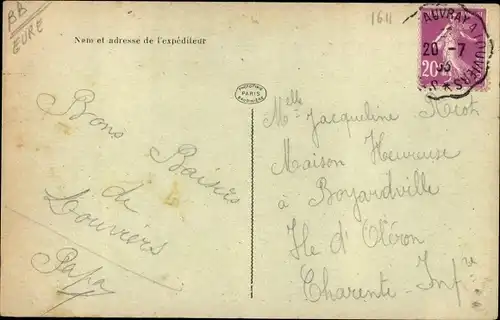 BB
EURE
Nom et adresse de l'expéditeur
1611
20 -7
35
20
PHOTOTYPIE
PARIS
Bons
Baisers
de
Louviers
Papa
Melle Jacqueline
Maison Heureuse
à Boyardville
Ile d'Oléron
Charente-Infre